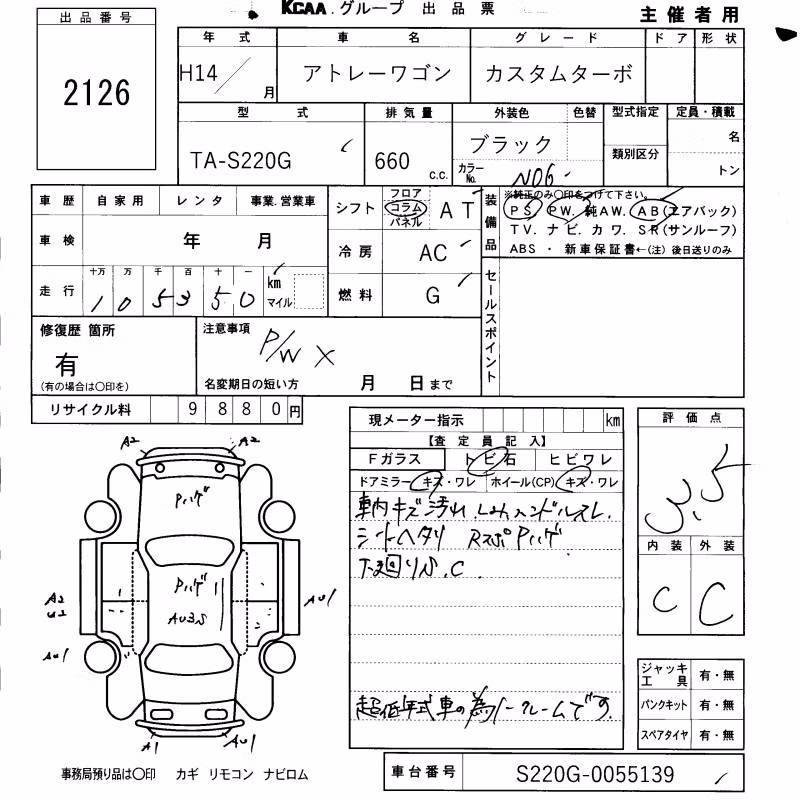 KCAA.グループ 出品票
主催者用
出品番号
2126
年式 車名 グレード ドア 形状
H14/ 月 アトレーワゴン カスタムターボ
型式 排気量 外装色 色替 型式指定 定員・積載
TA-S220G 660 c.c. ブラック 類別区分 名
カラーNo. N06 トン
車歴 自家用 レンタ 事業.営業車
シフト フロア コラム パネル AT
装備品
※純正のみ○印をつけて下さい。
PS PW. 純AW. AB(エアバック)
TV. ナビ. カワ. SR(サンルーフ)
ABS ・ 新車保証書←(注) 後日送りのみ
車検 年 月
冷房 AC
走行 十万 万 千 百 十 一 km マイル
1 0 5 3 5 0
燃料 G
セールスポイント
修復歴 箇所 有 (有の場合は○印を)
注意事項 P/W ×
名変期日の短い方 月 日まで
リサイクル料 9880円
現メーター指示 km
【査定員記入】
Fガラス トビ石 ヒビワレ
ドアミラー キズ・ワレ ホイール(CP) キズ・ワレ
車内キズ汚れ ハンドルスレ
シートヘタリ RスポPハゲ
下廻りS.C
超低年式車の為ノークレームです。
評価点
3.5
内装 外装
C C
A2 A2
Pハゲ
Pハゲ
AU3S
A2
U2
AU1
AU1
A1 AU1
ジャッキ 工具 有・無
パンクキット 有・無
スペアタイヤ 有・無
事務局預り品は○印 カギ リモコン ナビロム
車台番号 S220G-0055139